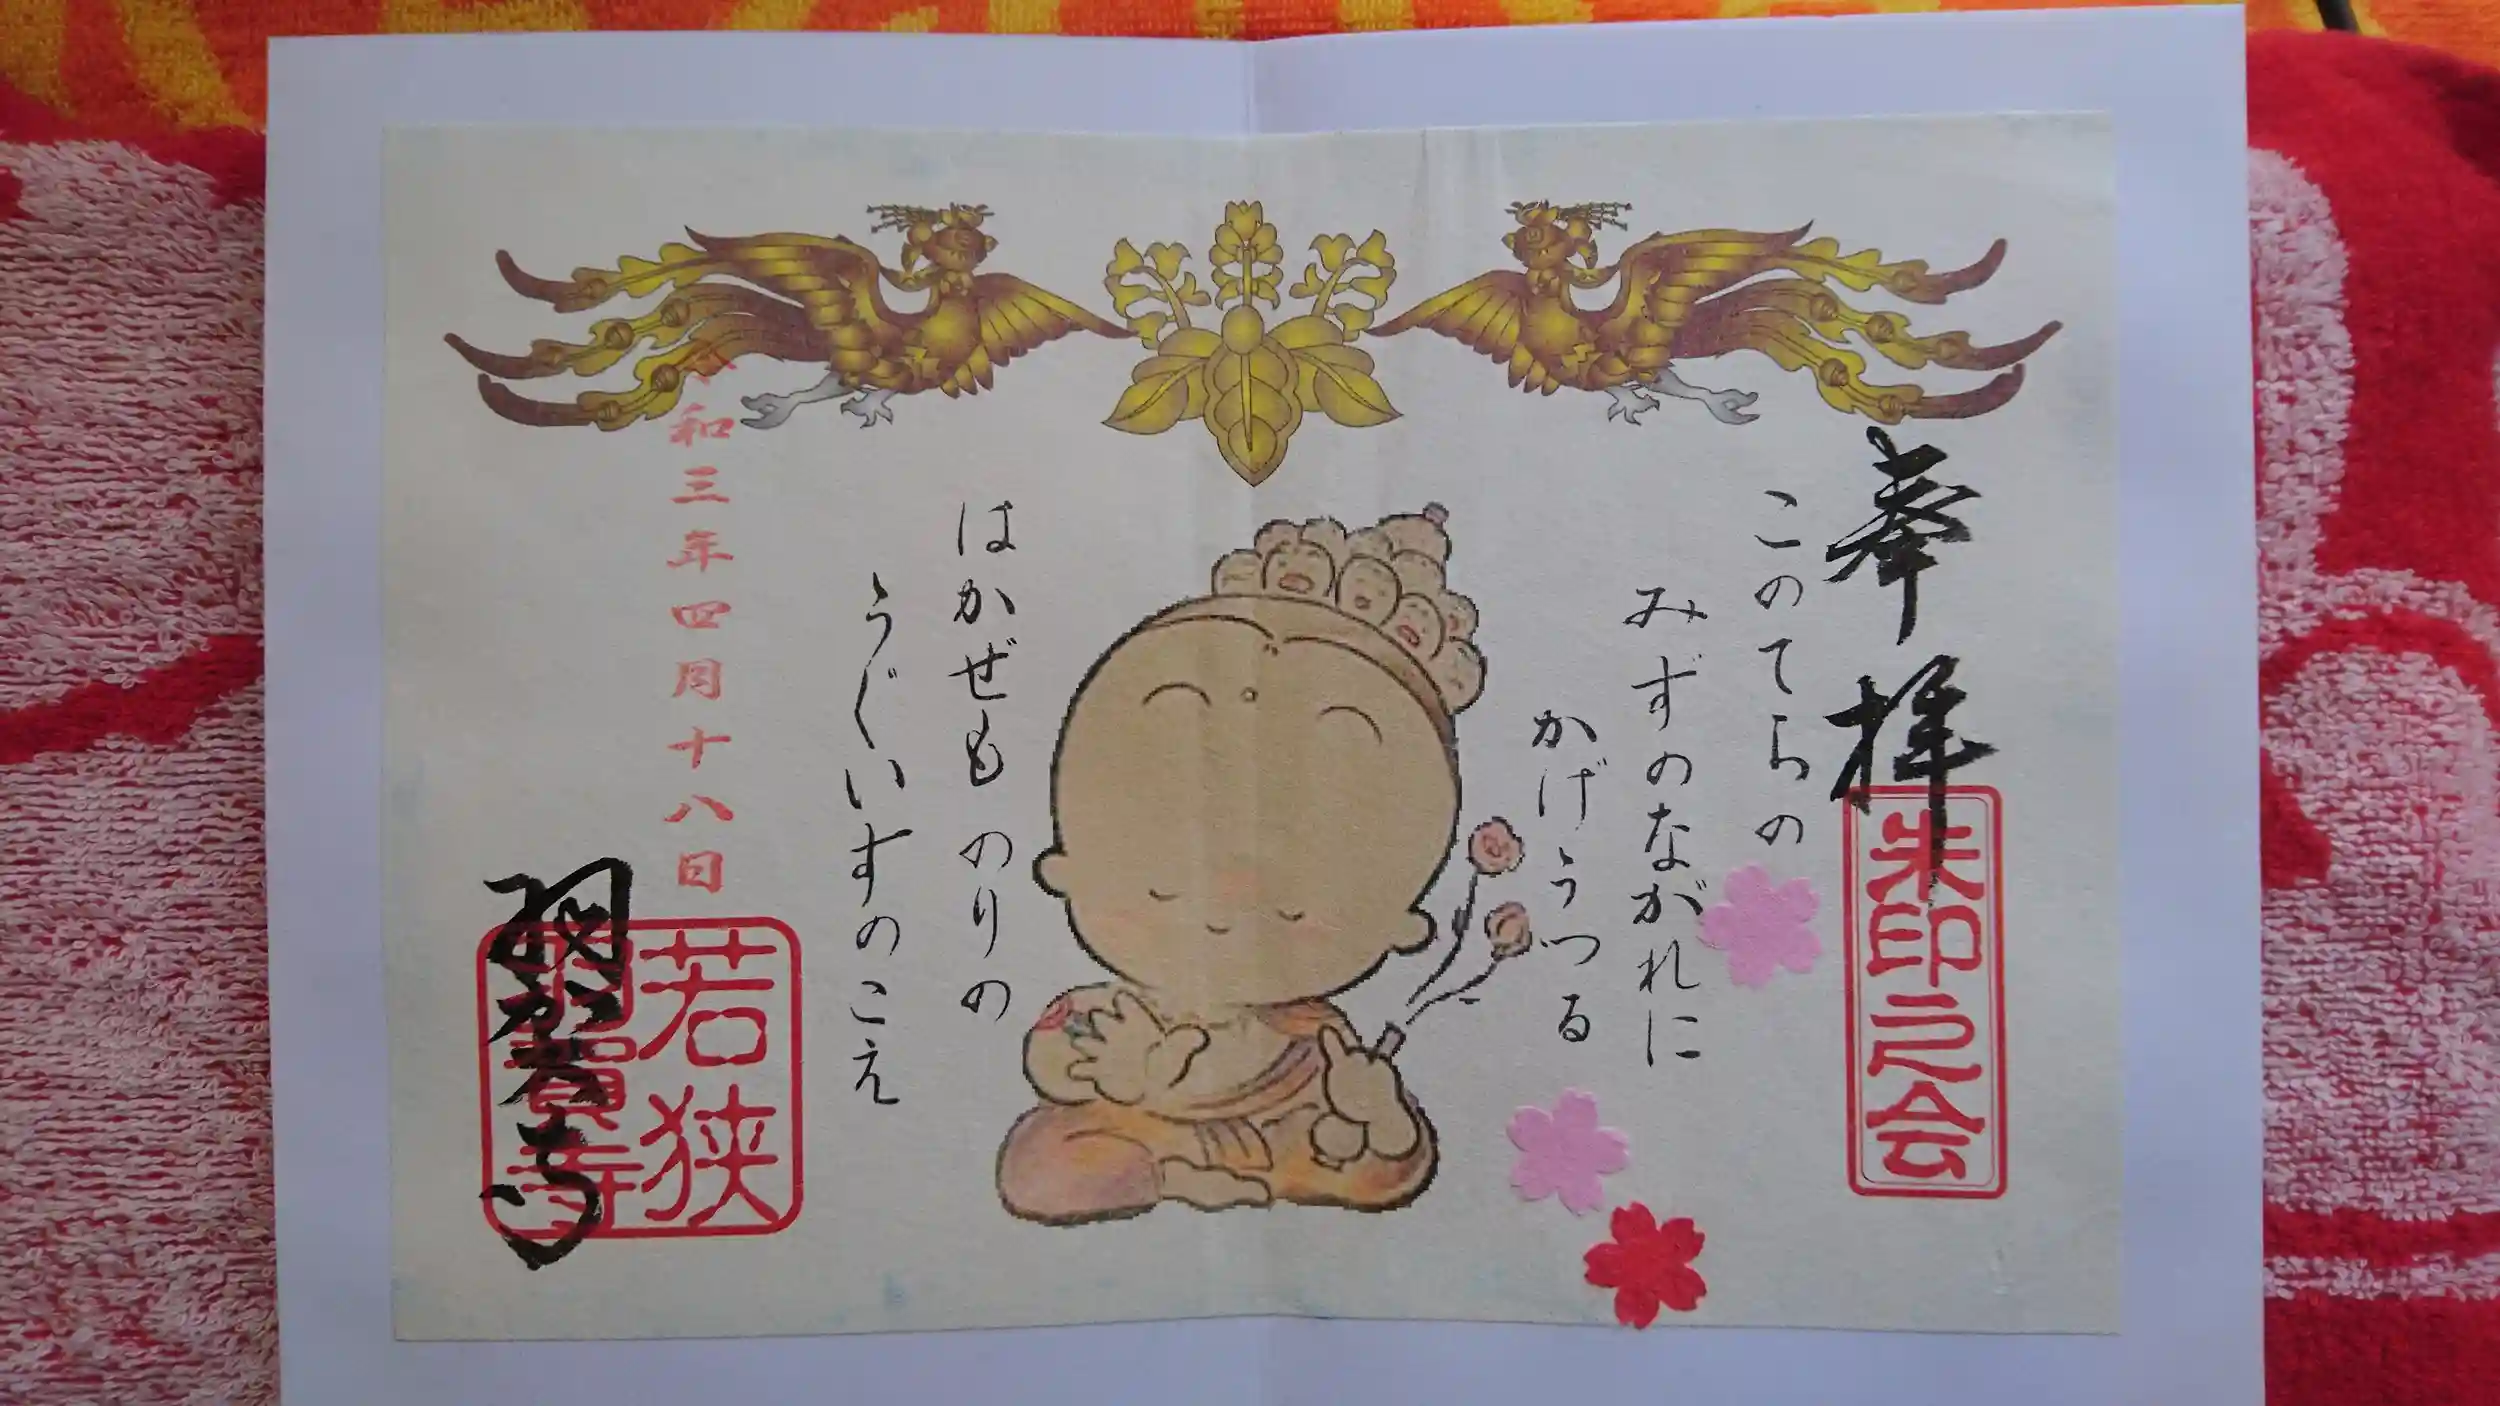 奉拝
朱印之会
このてらの
みずのながれに
かげうつる
はかぜも のりの
うぐいすのこえ
令和三年四月十八日
羽賀寺
若狭
羽賀寺